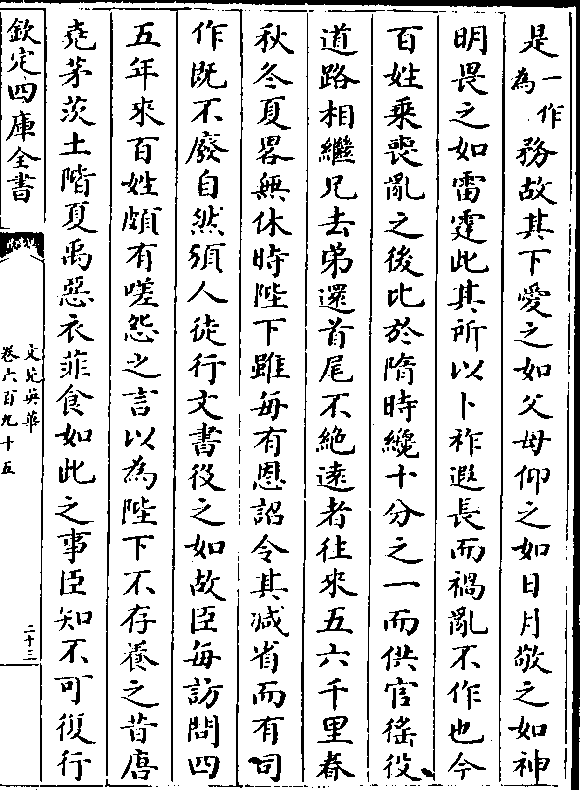 是一作為務故其下愛之如父母仰之如日月敬之如神
明畏之如雷霆此其所以卜祚遐長而禍亂不作也今
百姓乗喪亂之後比於隋時纔十分之一而供官徭役
道路相繼兄去弟還首尾不絶逺者往來五六千里春
秋冬夏畧無休時陛下雖毎有恩詔令其減省而有司
作既不廢自然湏人徒行文書役之如故臣毎訪問四
五年來百姓頗有嗟怨之言以為陛下不存養之昔唐
堯茅茨土階夏禹惡衣菲食如此之事臣知不可復行
欽定四庫全書
文苑英華
卷六百九十五
二十三